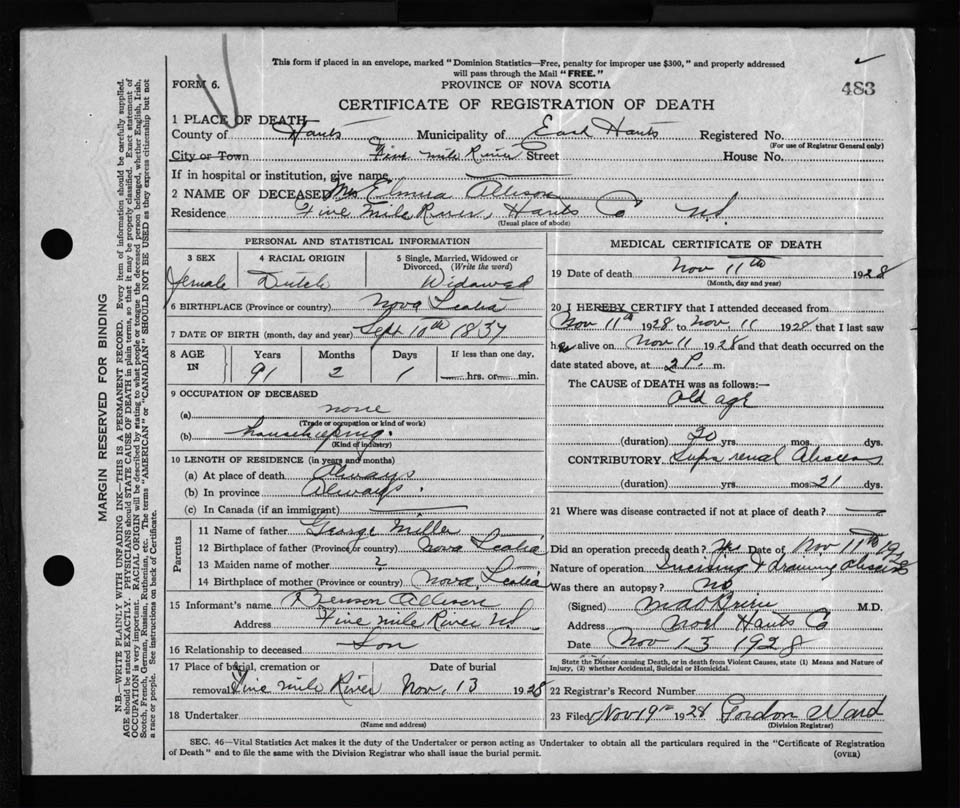 This form if placed in an envelope, marked "Dominion Statistics—Free, penalty for improper use $300," and properly addressed
will pass through the Mail "FREE."
FORM 6.
PROVINCE OF NOVA SCOTIA
483
CERTIFICATE OF REGISTRATION OF DEATH
1 PLACE OF DEATH
County of Hants Municipality of East Hants Registered No.
(For use of Registrar General only)
City or Town Five mile River Street House No.
If in hospital or institution, give name
2 NAME OF DECEASED Mrs Allison
Residence Five Mile River, Hants Co NS
(Usual place of abode)
PERSONAL AND STATISTICAL INFORMATION
3 SEX 4 RACIAL ORIGIN 5 Single, Married, Widowed or Divorced. (Write the word)
female Dutch Widowed
6 BIRTHPLACE (Province or country) Nova Scotia
7 DATE OF BIRTH (month, day and year) Sept 10th 1837
8 AGE IN Years Months Days If less than one day.
91 2 1 hrs. or min.
9 OCCUPATION OF DECEASED
(a) none
(Trade or occupation or kind of work)
(b) housekeeping.
(Kind of industry)
10 LENGTH OF RESIDENCE (in years and months)
(a) At place of death Always
(b) In province Always.
(c) In Canada (if an immigrant)
Parents
11 Name of father George Miller
12 Birthplace of father (Province or country) Nova Scotia
13 Maiden name of mother ?
14 Birthplace of mother (Province or country) Nova Scotia
15 Informant's name Benson Allison
Address Five mile River NS
16 Relationship to deceased Son
17 Place of burial, cremation or removal Date of burial
Five mile River Nov. 13 1928
18 Undertaker
(Name and address)
MEDICAL CERTIFICATE OF DEATH
19 Date of death Nov 11th 1928
(Month, day and year)
20 I HEREBY CERTIFY that I attended deceased from
Nov 11th 1928 to Nov. 11 1928 that I last saw
her alive on Nov 11 1928 and that death occurred on the
date stated above, at 2 P. m.
The CAUSE of DEATH was as follows:—
Old age
(duration) 20 yrs. mos. dys.
CONTRIBUTORY Supra renal Abscess
(duration) yrs. mos. 21 dys.
21 Where was disease contracted if not at place of death?
Did an operation precede death? Yes Date of Nov 11th 1928
Nature of operation Incising & draining abscess
Was there an autopsy? No
(Signed) M.D.
Address Noel Hants Co
Date Nov 13 1928
State the Disease causing Death, or in death from Violent Causes, state (1) Means and Nature of
Injury, (2) whether Accidental, Suicidal or Homicidal.
22 Registrar's Record Number
23 Filed Nov 19th 1928 Gordon Ward
(Division Registrar)
SEC. 46—Vital Statistics Act makes it the duty of the Undertaker or person acting as Undertaker to obtain all the particulars required in the "Certificate of Registration
of Death" and to file the same with the Division Registrar who shall issue the burial permit.
(OVER)
MARGIN RESERVED FOR BINDING
N.B.—WRITE PLAINLY WITH UNFADING INK—THIS IS A PERMANENT RECORD. Every item of information should be carefully supplied.
AGE should be stated EXACTLY. PHYSICIANS should STATE CAUSE OF DEATH in plain terms, so that it may be properly classified. Exact statement of
OCCUPATION is very important. RACIAL ORIGIN will be described by stating to what people or tongue the deceased person belonged, whether English, Irish,
Scotch, French, German, Russian, Ruthenian, etc. The terms "AMERICAN" or "CANADIAN" SHOULD NOT BE USED as they express citizenship but not
a race or people. See instructions on back of Certificate.